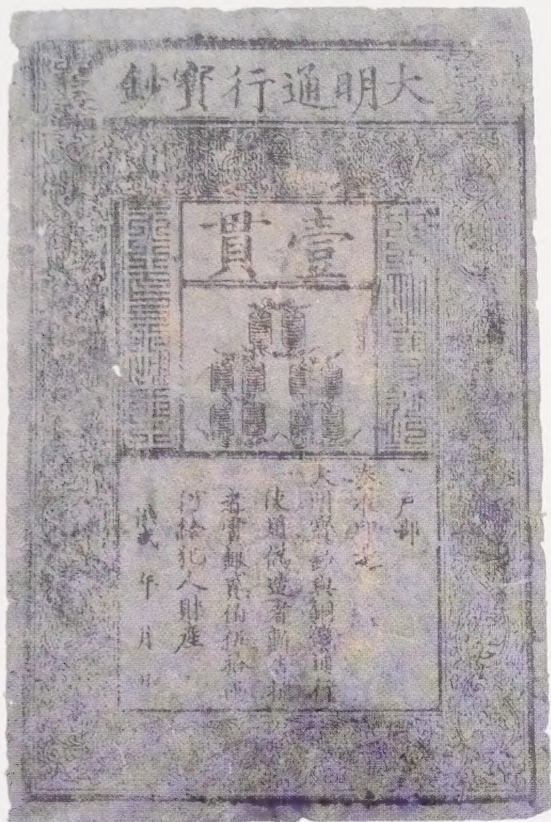 大明通行寳鈔
壹貫
户部
奏准印造
大明寳鈔與銅錢通行
使用偽造者斬告捕
者賞銀貳伯伍拾兩
仍給犯人財産
洪武 年 月 日